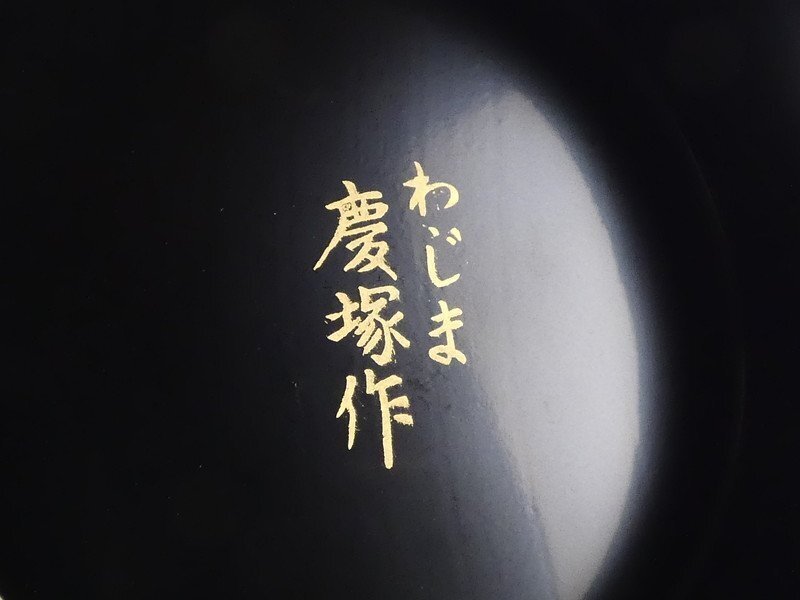 わじま
慶塚作